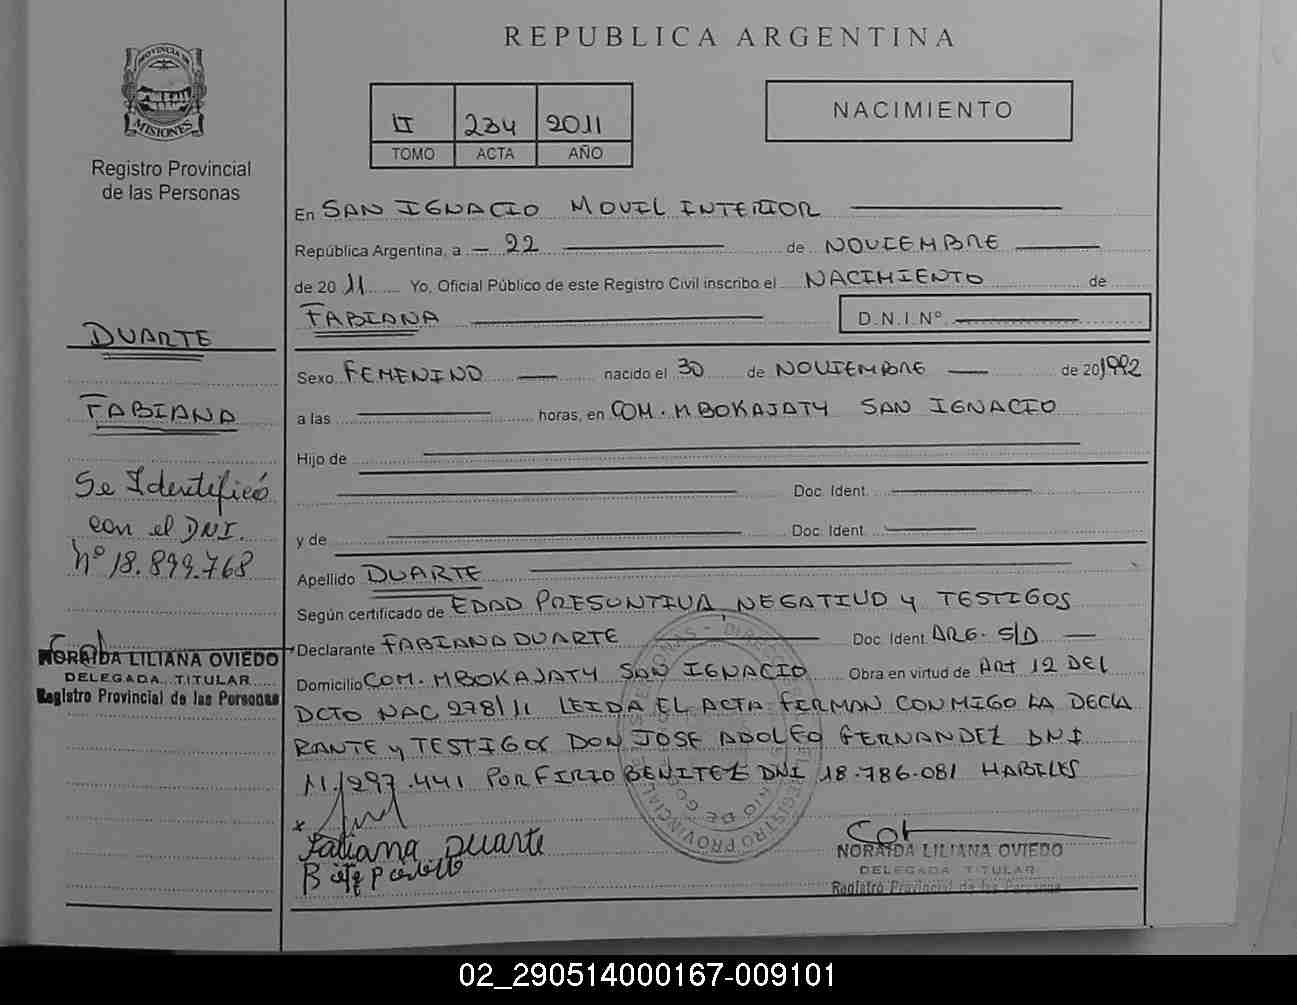 REPUBLICA ARGENTINA
PROVINCIA DE
MISIONES
Registro Provincial
de las Personas
II 234 2011
TOMO ACTA AÑO
NACIMIENTO
En SAN IGNACIO MOVIL INTERIOR
República Argentina, a 22 de NOVIEMBRE
de 2011 Yo, Oficial Público de este Registro Civil inscribo el NACIMIENTO de
FABIANA D.N.I.Nº
DUARTE
FABIANA
Se Identificó
con el DNI.
Nº 18.899.768
NORAIDA LILIANA OVIEDO
DELEGADA TITULAR
Registro Provincial de las Personas
Sexo FEMENINO nacido el 30 de NOVIEMBRE de 201992
a las horas, en COM. MBOKAJATY SAN IGNACIO
Hijo de
Doc. Ident.
y de Doc. Ident.
Apellido DUARTE
Según certificado de EDAD PRESUNTIVA NEGATIVO y TESTIGOS
Declarante FABIANA DUARTE Doc. Ident. ARG. S/D
Domicilio COM. MBOKAJATY SAN IGNACIO Obra en virtud de ART 12 DEL
DCTO NAC 278/11 LEIDA EL ACTA FIRMAN CONMIGO LA DECLA
RANTE y TESTIGOS DON JOSE ADOLFO FERNANDEZ DNI
11.297.441 PORFIRIO BENITEZ DNI 18.786.081 HABILES
x
Fabiana Duarte
NORAIDA LILIANA OVIEDO
DELEGADA TITULAR
Registro Provincial de las Personas
02_290514000167-009101